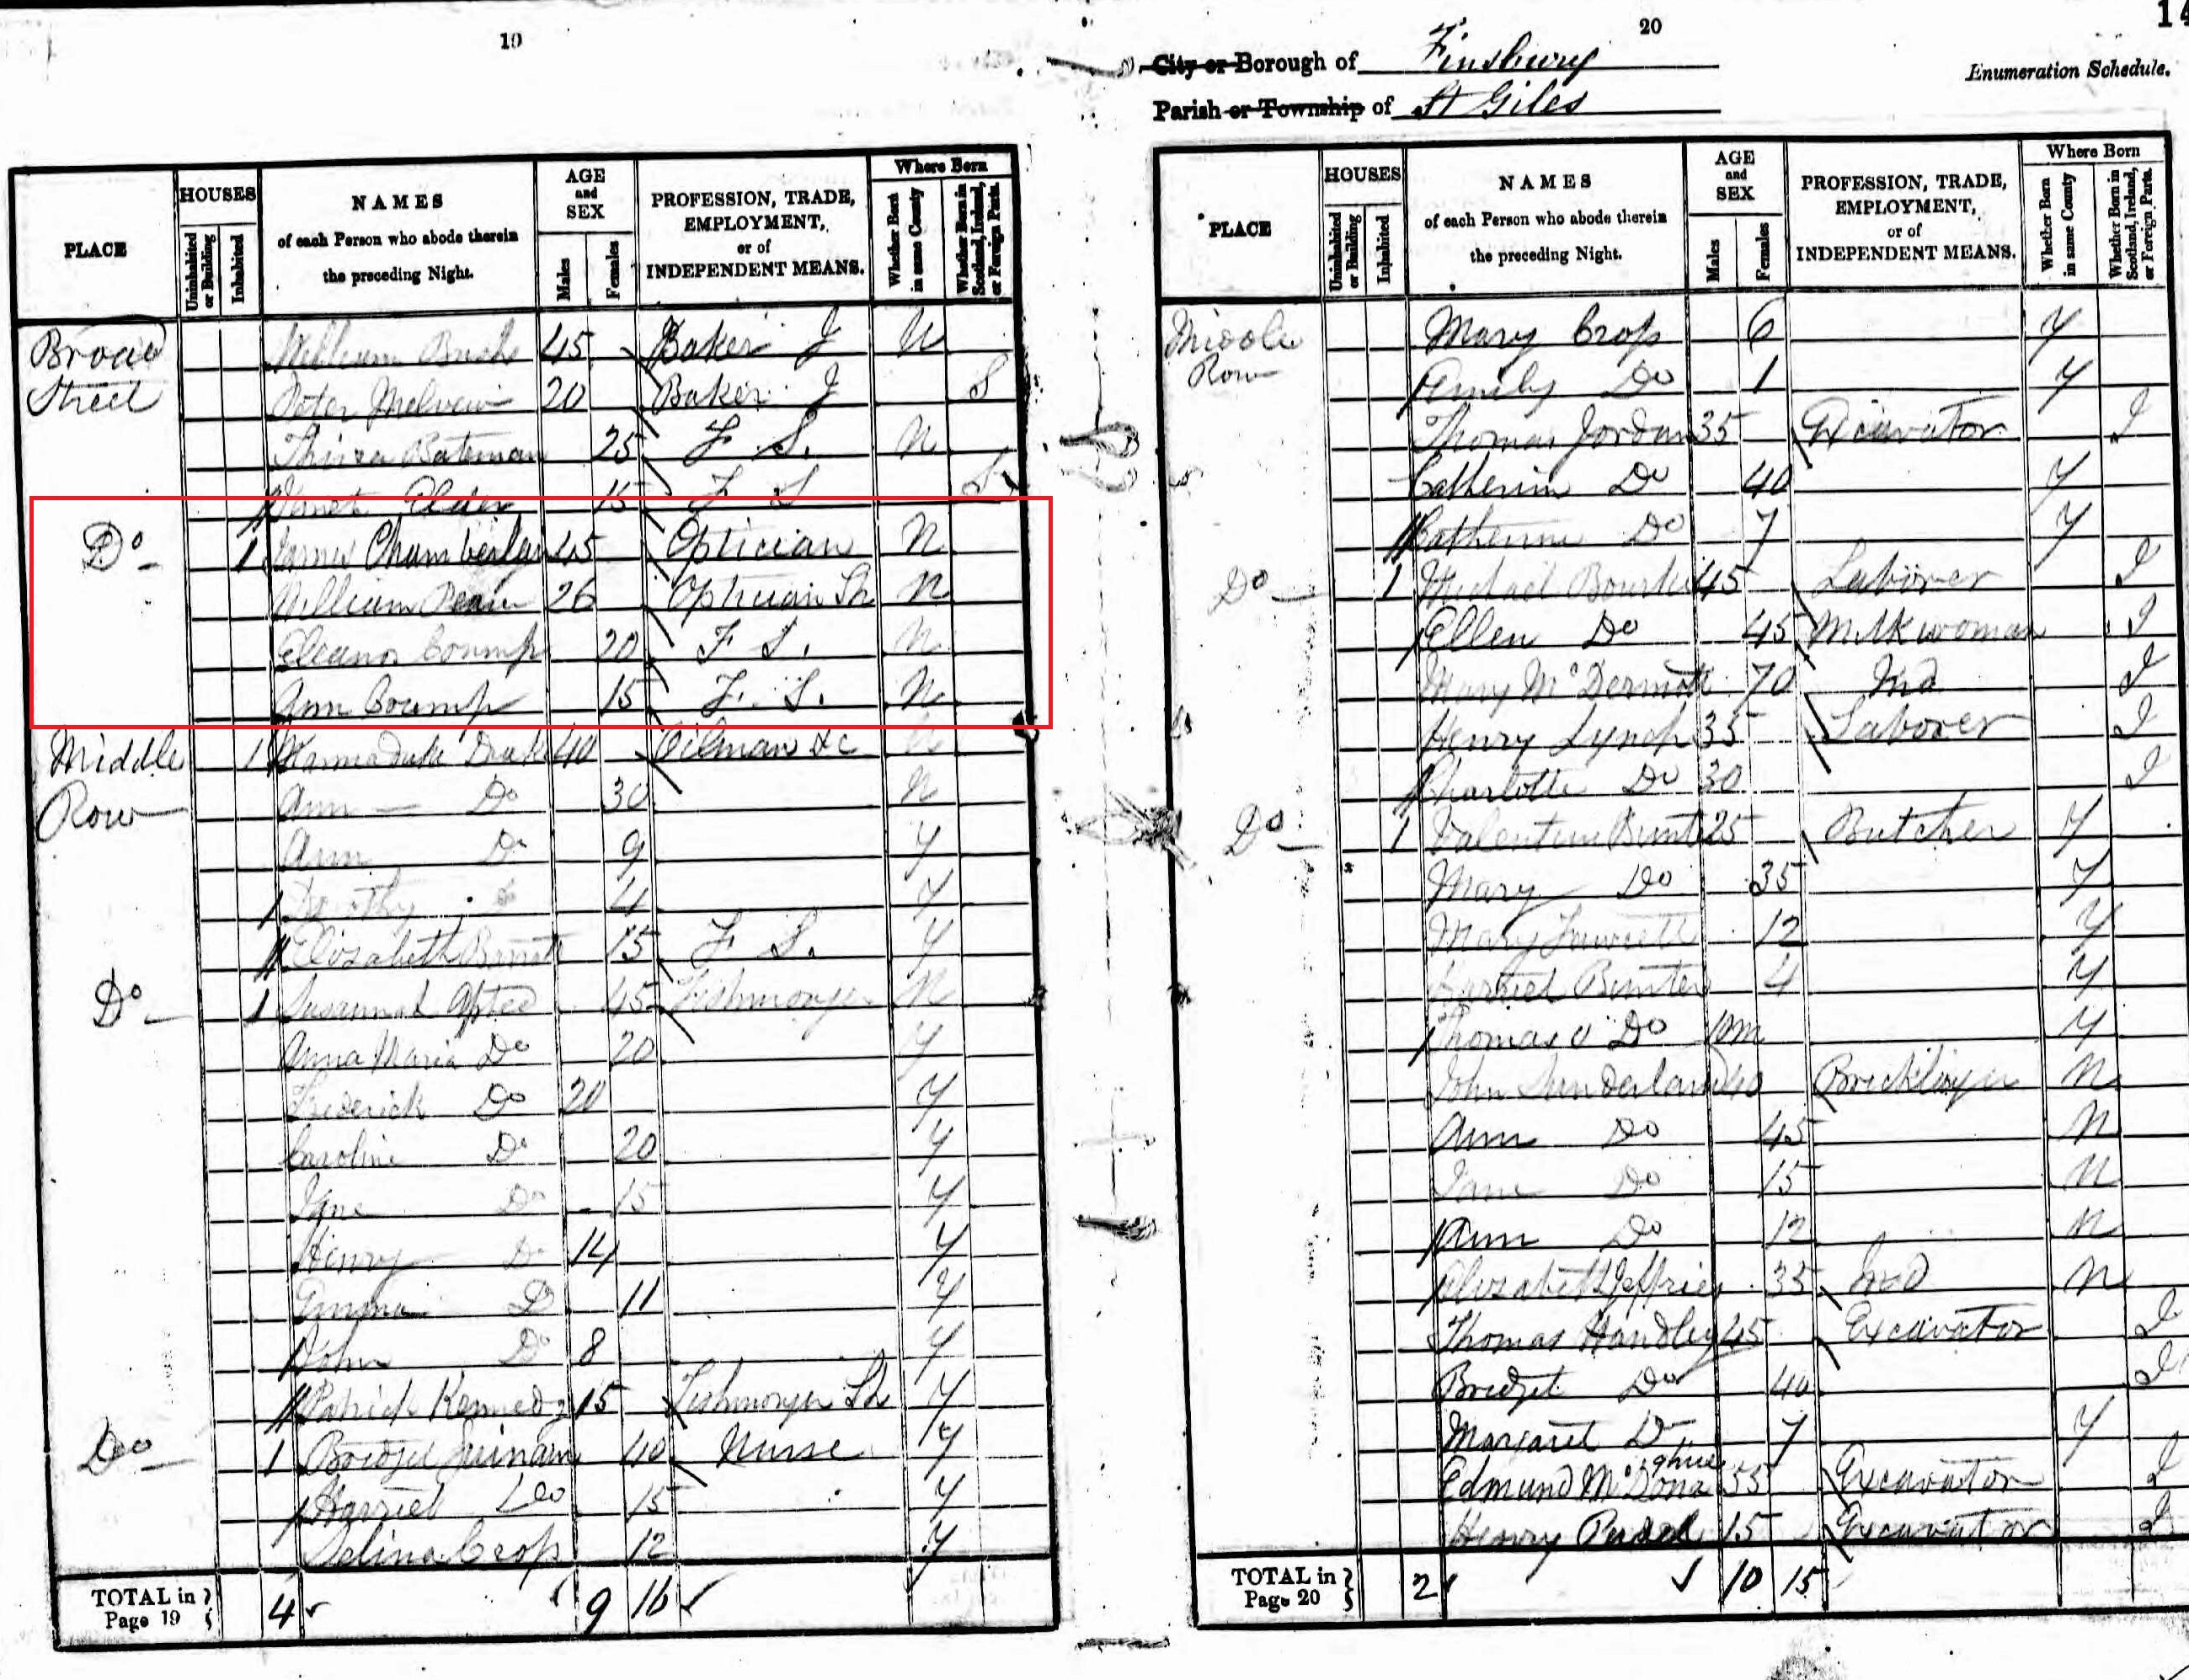 19
PLACE
HOUSES
Uninhabited or Building
Inhabited
NAMES
of each Person who abode therein
the preceding Night.
AGE
and
SEX
Males
Females
PROFESSION, TRADE,
EMPLOYMENT,
or of
INDEPENDENT MEANS.
Where Born
Whether Born in same County
Whether Born in Scotland, Ireland, or Foreign Parts.
Broad William Bush 45 Baker J N
Street Peter 20 Baker J S
Bateman 25 F. S. N
15 F S S
Do 1 James Chamberlan 45 Optician N
William 26 Optician Sh N
Eleanor 20 F S. N
Ann 15 F. S. N
Middle 1 Marmaduke Drake 40 Oilman &c N
Row Ann — Do 30 N
Ann Do 9 Y
Dorothy Do 4 Y
Elizabeth 15 F S. Y
Do 1 Susannah 45 Fishmonger N
Anna Maria Do 20 Y
Frederick Do 20 Y
Caroline Do 20 Y
Jane Do 15 Y
Henry Do 14 Y
Emma Do 11 Y
John Do 8 Y
Patrick Kennedy 15 Fishmonger Sh Y
Do 1 40 Nurse Y
Harriet Do 15 Y
Selina Crop 12 Y
TOTAL in
Page 19 4 9 16
20
14
City or Borough of Finsbury
Enumeration Schedule.
Parish or Township of St Giles
PLACE
HOUSES
Uninhabited or Building
Inhabited
NAMES
of each Person who abode therein
the preceding Night.
AGE
and
SEX
Males
Females
PROFESSION, TRADE,
EMPLOYMENT,
or of
INDEPENDENT MEANS.
Where Born
Whether Born in same County
Whether Born in Scotland, Ireland, or Foreign Parts.
Middle Mary Crop 6 Y
Row Emily Do 1 Y
Thomas Jordan 35 Excavator I
Catherine Do 40 Y
Catherine Do 7 Y
Do 1 Michael Bourke 45 Laborer I
Ellen Do 45 Milkwoman I
Mary McDermott 70 Ind I
Henry Lynch 35 Laborer I
Charlotte Do 30 I
Do 1 Valentine 25 Butcher Y
Mary Do 35 Y
Mary Fawcett 12 Y
Harriet Bunter 4 Y
Thomas Do 10m Y
John Sunderland 40 Bricklayer N
Ann Do 45 N
Jane Do 15 N
Ann Do 12 N
Elizabeth Jeffries 35 Ind N
Thomas Handley 45 Excavator I
Bridget Do 40 I
Margaret Do 7 Y
Edmund McDonaghue 35 Excavator I
Henry 15 Excavator I
TOTAL in
Page 20 2 10 15